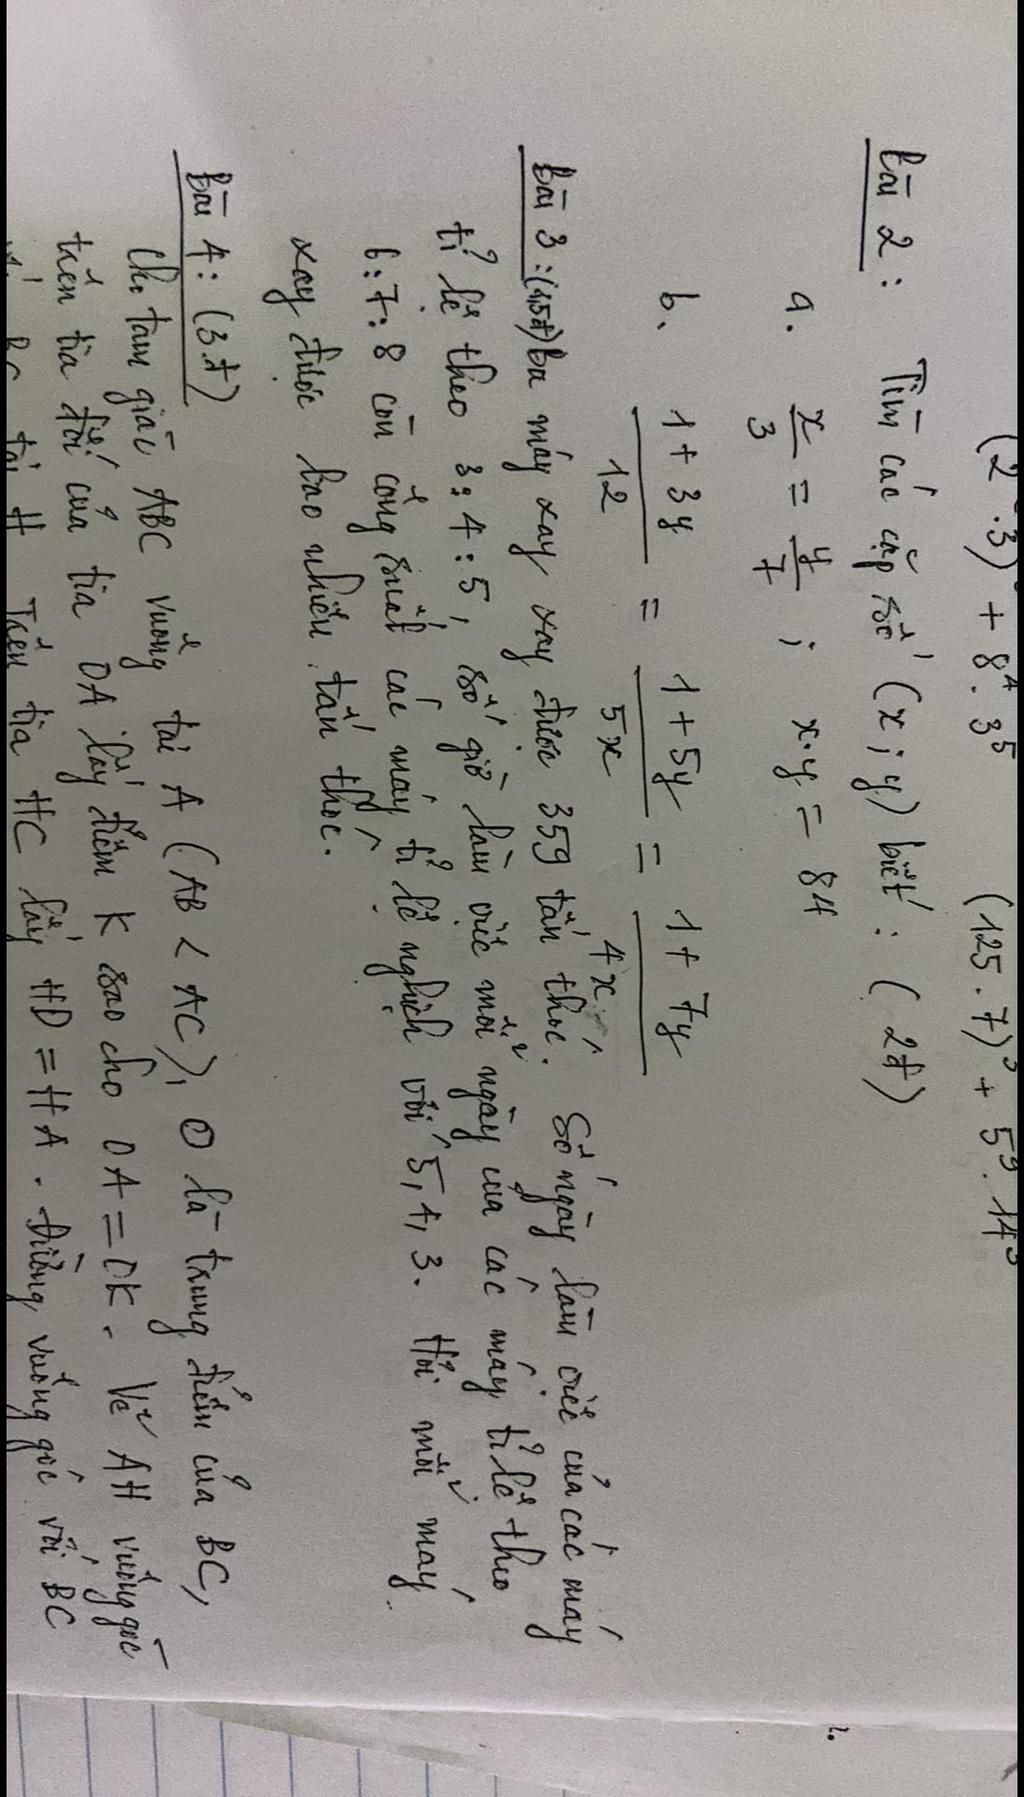 (2 .3) + 8⁴.3⁵ (125.7)³ + 5⁹.14³
Bài 2: Tìm các cặp số (x; y) biết: (2đ)
a. x/3 = y/7 ; x.y = 84
b. (1+3y)/12 = (1+5y)/5x = (1+7y)/4x
Bài 3: (1,5đ) Ba máy xay xay được 359 tấn thóc. Số ngày làm việc của các máy
tỉ lệ theo 3:4:5, số giờ làm việc mỗi ngày của các máy tỉ lệ theo
6:7:8 còn công suất các máy tỉ lệ nghịch với 5, 4, 3. Hỏi mỗi máy
xay được bao nhiêu tấn thóc.
Bài 4: (3đ)
Cho tam giác ABC vuông tại A (AB < AC), O là trung điểm của BC,
trên tia đối của tia OA lấy điểm K sao cho OA = OK. Vẽ AH vuông góc
với BC tại H Trên tia HC lấy HD = HA. Đường vuông góc với BC